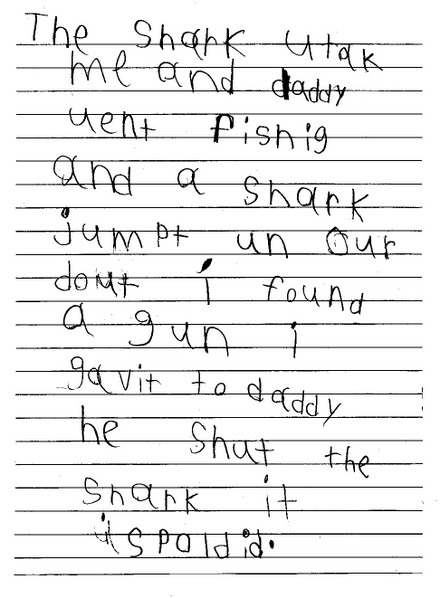 The Shark Utak
me and daddy
uent Fishig
and a Shark
jumpt un Our
dout i found
a gun i
gavit to daddy
he Shut the
Shark it
iSpoldid.